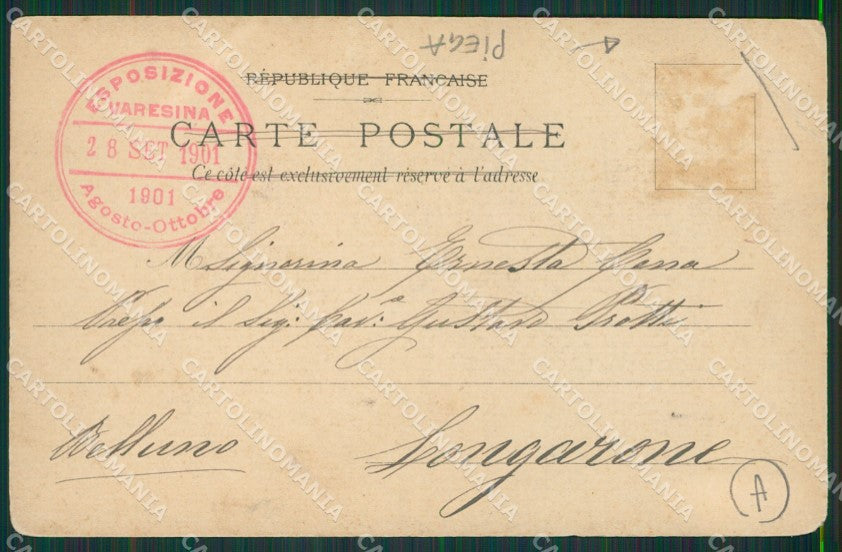 PIEGA
RÉPUBLIQUE FRANCAISE
CARTE POSTALE
Ce côté est exclusivement réservé à l'adresse
ESPOSIZIONE
VARESINA
28 SET 1901
1901
Agosto-Ottobre
M Signorina Ernesta
il Sig: Cav: Gustavo Protti
Belluno Longarone
A
CARTOLINOMANIA